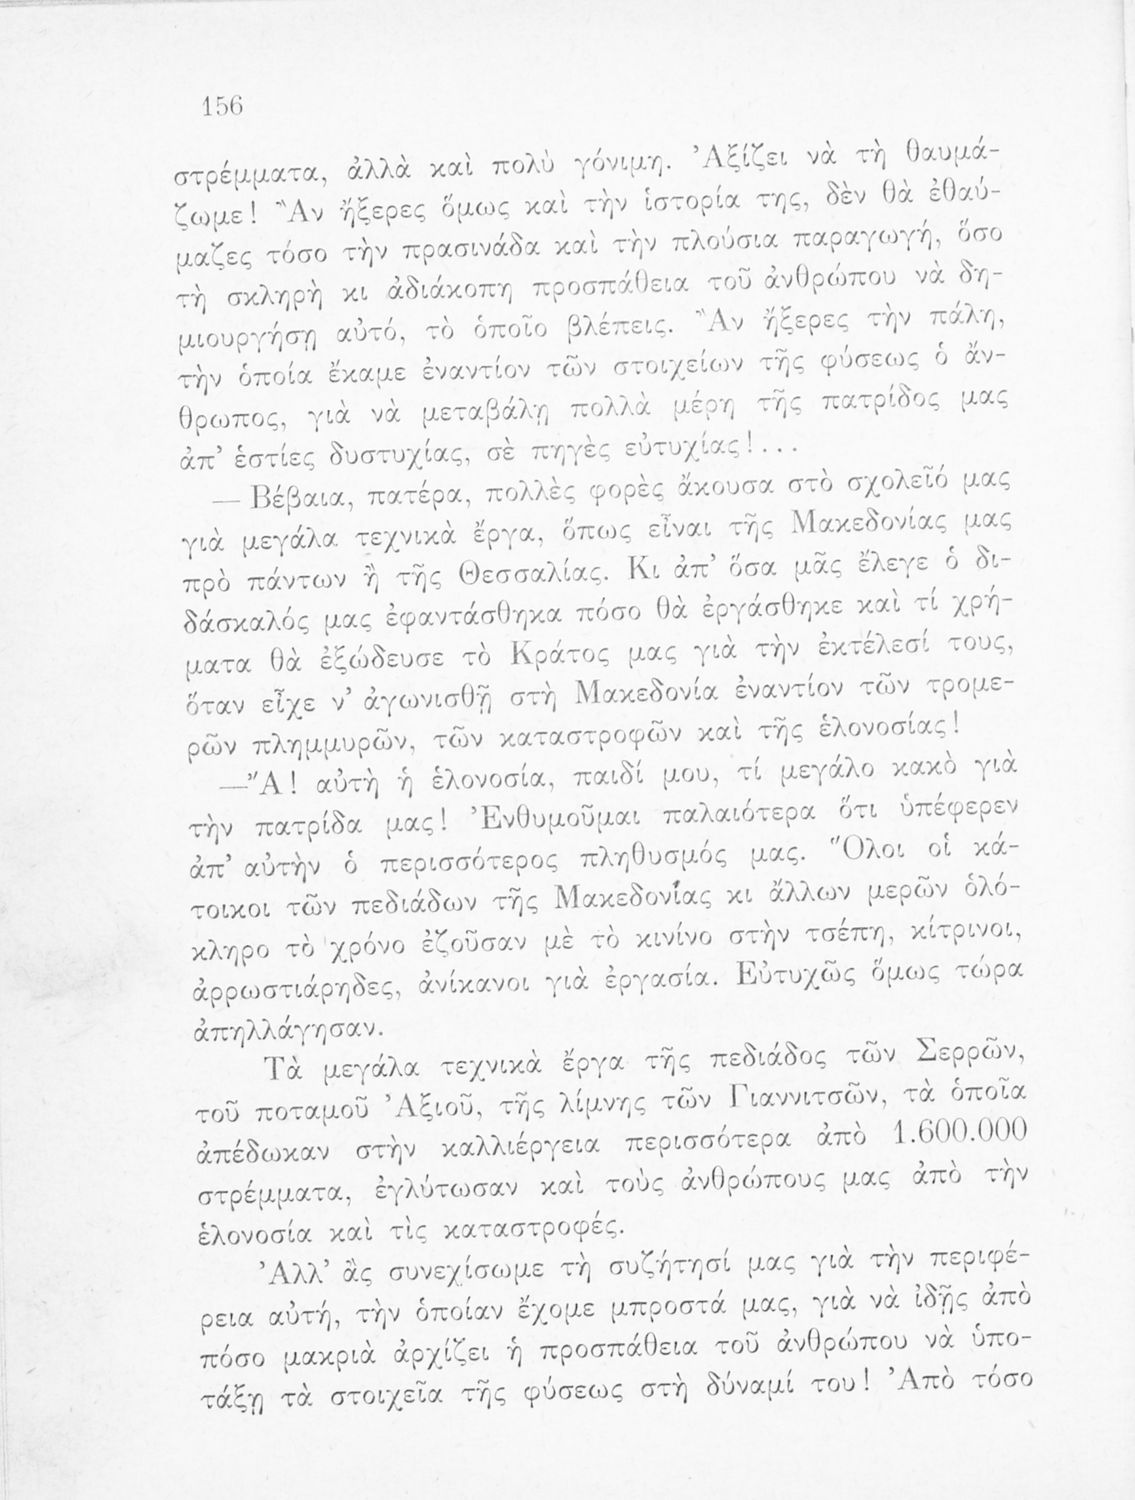 156
στρέμματα, ἀλλὰ καὶ πολὺ γόνιμη. Ἀξίζει νὰ τὴ θαυμά-
ζωμε! Ἂν ἤξερες ὅμως καὶ τὴν ἱστορία της, δὲν θὰ ἐθαύ-
μαζες τόσο τὴν πρασινάδα καὶ τὴν πλούσια παραγωγή, ὅσο
τὴ σκληρὴ κι ἀδιάκοπη προσπάθεια τοῦ ἀνθρώπου νὰ δη-
μιουργήσῃ αὐτό, τὸ ὁποῖο βλέπεις. Ἂν ἤξερες τὴν πάλη,
τὴν ὁποία ἔκαμε ἐναντίον τῶν στοιχείων τῆς φύσεως ὁ ἄν-
θρωπος, γιὰ νὰ μεταβάλῃ πολλὰ μέρη τῆς πατρίδος μας
ἀπ’ ἑστίες δυστυχίας, σὲ πηγὲς εὐτυχίας!...
— Βέβαια, πατέρα, πολλὲς φορὲς ἄκουσα στὸ σχολεῖό μας
γιὰ μεγάλα τεχνικὰ ἔργα, ὅπως εἶναι τῆς Μακεδονίας μας
πρὸ πάντων ἢ τῆς Θεσσαλίας. Κι ἀπ’ ὅσα μᾶς ἔλεγε ὁ δι-
δάσκαλός μας ἐφαντάσθηκα πόσο θὰ ἐργάσθηκε καὶ τί χρή-
ματα θὰ ἐξώδευσε τὸ Κράτος μας γιὰ τὴν ἐκτέλεσί τους,
ὅταν εἶχε ν’ ἀγωνισθῇ στὴ Μακεδονία ἐναντίον τῶν τρομε-
ρῶν πλημμυρῶν, τῶν καταστροφῶν καὶ τῆς ἑλονοσίας!
—Ἄ! αὐτὴ ἡ ἑλονοσία, παιδί μου, τί μεγάλο κακὸ γιὰ
τὴν πατρίδα μας! Ἐνθυμοῦμαι παλαιότερα ὅτι ὑπέφερεν
ἀπ’ αὐτὴν ὁ περισσότερος πληθυσμός μας. Ὅλοι οἱ κά-
τοικοι τῶν πεδιάδων τῆς Μακεδονίας κι ἄλλων μερῶν ὁλό-
κληρο τὸ χρόνο ἐζοῦσαν μὲ τὸ κινίνο στὴν τσέπη, κίτρινοι,
ἀρρωστιάρηδες, ἀνίκανοι γιὰ ἐργασία. Εὐτυχῶς ὅμως τώρα
ἀπηλλάγησαν.
Τὰ μεγάλα τεχνικὰ ἔργα τῆς πεδιάδος τῶν Σερρῶν,
τοῦ ποταμοῦ Ἀξιοῦ, τῆς λίμνης τῶν Γιαννιτσῶν, τὰ ὁποῖα
ἀπέδωκαν στὴν καλλιέργεια περισσότερα ἀπὸ 1.600.000
στρέμματα, ἐγλύτωσαν καὶ τοὺς ἀνθρώπους μας ἀπὸ τὴν
ἑλονοσία καὶ τὶς καταστροφές.
Ἀλλ’ ἂς συνεχίσωμε τὴ συζήτησί μας γιὰ τὴν περιφέ-
ρεια αὐτή, τὴν ὁποίαν ἔχομε μπροστά μας, γιὰ νὰ ἰδῇς ἀπὸ
πόσο μακριὰ ἀρχίζει ἡ προσπάθεια τοῦ ἀνθρώπου νὰ ὑπο-
τάξῃ τὰ στοιχεῖα τῆς φύσεως στὴ δύναμί του! Ἀπὸ τόσο